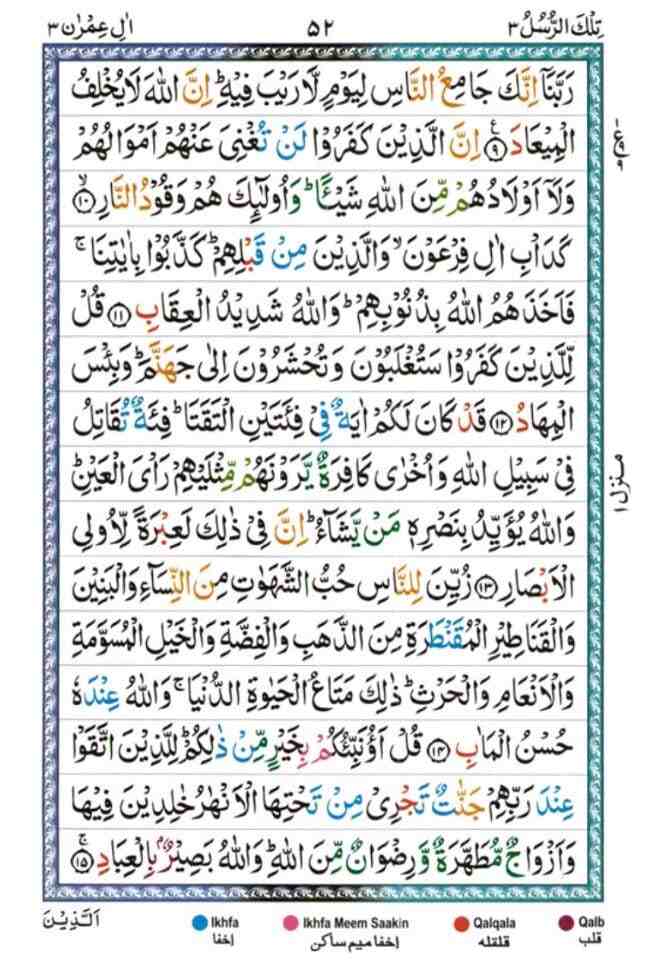 تِلْكَ الرُّسُلُ ٣
٥٢
اٰلِ عِمْرٰن ٣
رَبَّنَاۤ اِنَّكَ جَامِعُ النَّاسِ لِيَوْمٍ لَّا رَيْبَ فِيْهِ ؕ اِنَّ اللّٰهَ لَا يُخْلِفُ
الْمِيْعَادَ ﴿٩﴾ ع اِنَّ الَّذِيْنَ كَفَرُوْا لَنْ تُغْنِىَ عَنْهُمْ اَمْوَالُهُمْ
وَلَاۤ اَوْلَادُهُمْ مِّنَ اللّٰهِ شَيْـًٔا ؕ وَاُولٰٓئِكَ هُمْ وَقُوْدُ النَّارِ ﴿١٠﴾ ۙ
كَدَاْبِ اٰلِ فِرْعَوْنَ ۙ وَالَّذِيْنَ مِنْ قَبْلِهِمْ ؕ كَذَّبُوْا بِاٰيٰتِنَا ۚ
فَاَخَذَهُمُ اللّٰهُ بِذُنُوْبِهِمْ ؕ وَاللّٰهُ شَدِيْدُ الْعِقَابِ ﴿١١﴾ قُلْ
لِّلَّذِيْنَ كَفَرُوْا سَتُغْلَبُوْنَ وَتُحْشَرُوْنَ اِلٰى جَهَنَّمَ ؕ وَبِئْسَ
الْمِهَادُ ﴿١٢﴾ قَدْ كَانَ لَكُمْ اٰيَةٌ فِىْ فِئَتَيْنِ الْتَقَتَا ؕ فِئَةٌ تُقَاتِلُ
فِىْ سَبِيْلِ اللّٰهِ وَاُخْرٰى كَافِرَةٌ يَّرَوْنَهُمْ مِّثْلَيْهِمْ رَاْىَ الْعَيْنِ ؕ
وَاللّٰهُ يُؤَيِّدُ بِنَصْرِهٖ مَنْ يَّشَآءُ ؕ اِنَّ فِىْ ذٰلِكَ لَعِبْرَةً لِّاُولِى
الْاَبْصَارِ ﴿١٣﴾ زُيِّنَ لِلنَّاسِ حُبُّ الشَّهَوٰتِ مِنَ النِّسَآءِ وَالْبَنِيْنَ
وَالْقَنَاطِيْرِ الْمُقَنْطَرَةِ مِنَ الذَّهَبِ وَالْفِضَّةِ وَالْخَيْلِ الْمُسَوَّمَةِ
وَالْاَنْعَامِ وَالْحَرْثِ ؕ ذٰلِكَ مَتَاعُ الْحَيٰوةِ الدُّنْيَا ۚ وَاللّٰهُ عِنْدَهٗ
حُسْنُ الْمَاٰبِ ﴿١٤﴾ قُلْ اَؤُنَبِّئُكُمْ بِخَيْرٍ مِّنْ ذٰلِكُمْ ؕ لِلَّذِيْنَ اتَّقَوْا
عِنْدَ رَبِّهِمْ جَنّٰتٌ تَجْرِىْ مِنْ تَحْتِهَا الْاَنْهٰرُ خٰلِدِيْنَ فِيْهَا
وَاَزْوَاجٌ مُّطَهَّرَةٌ وَّرِضْوَانٌ مِّنَ اللّٰهِ ؕ وَاللّٰهُ بَصِيْرٌۢ بِالْعِبَادِ ﴿١٥﴾ ۚ
منزل ١
اَلَّذِيْنَ
Ikhfa
إخفا
Ikhfa Meem Saakin
إخفا ميم ساكن
Qalqala
قلقله
Qalb
قلب